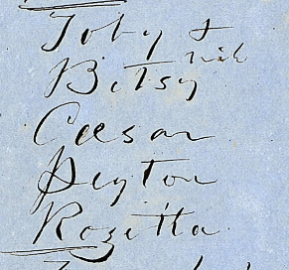 Toby &
Betsy
Cæsar
Peyton
Rozetta